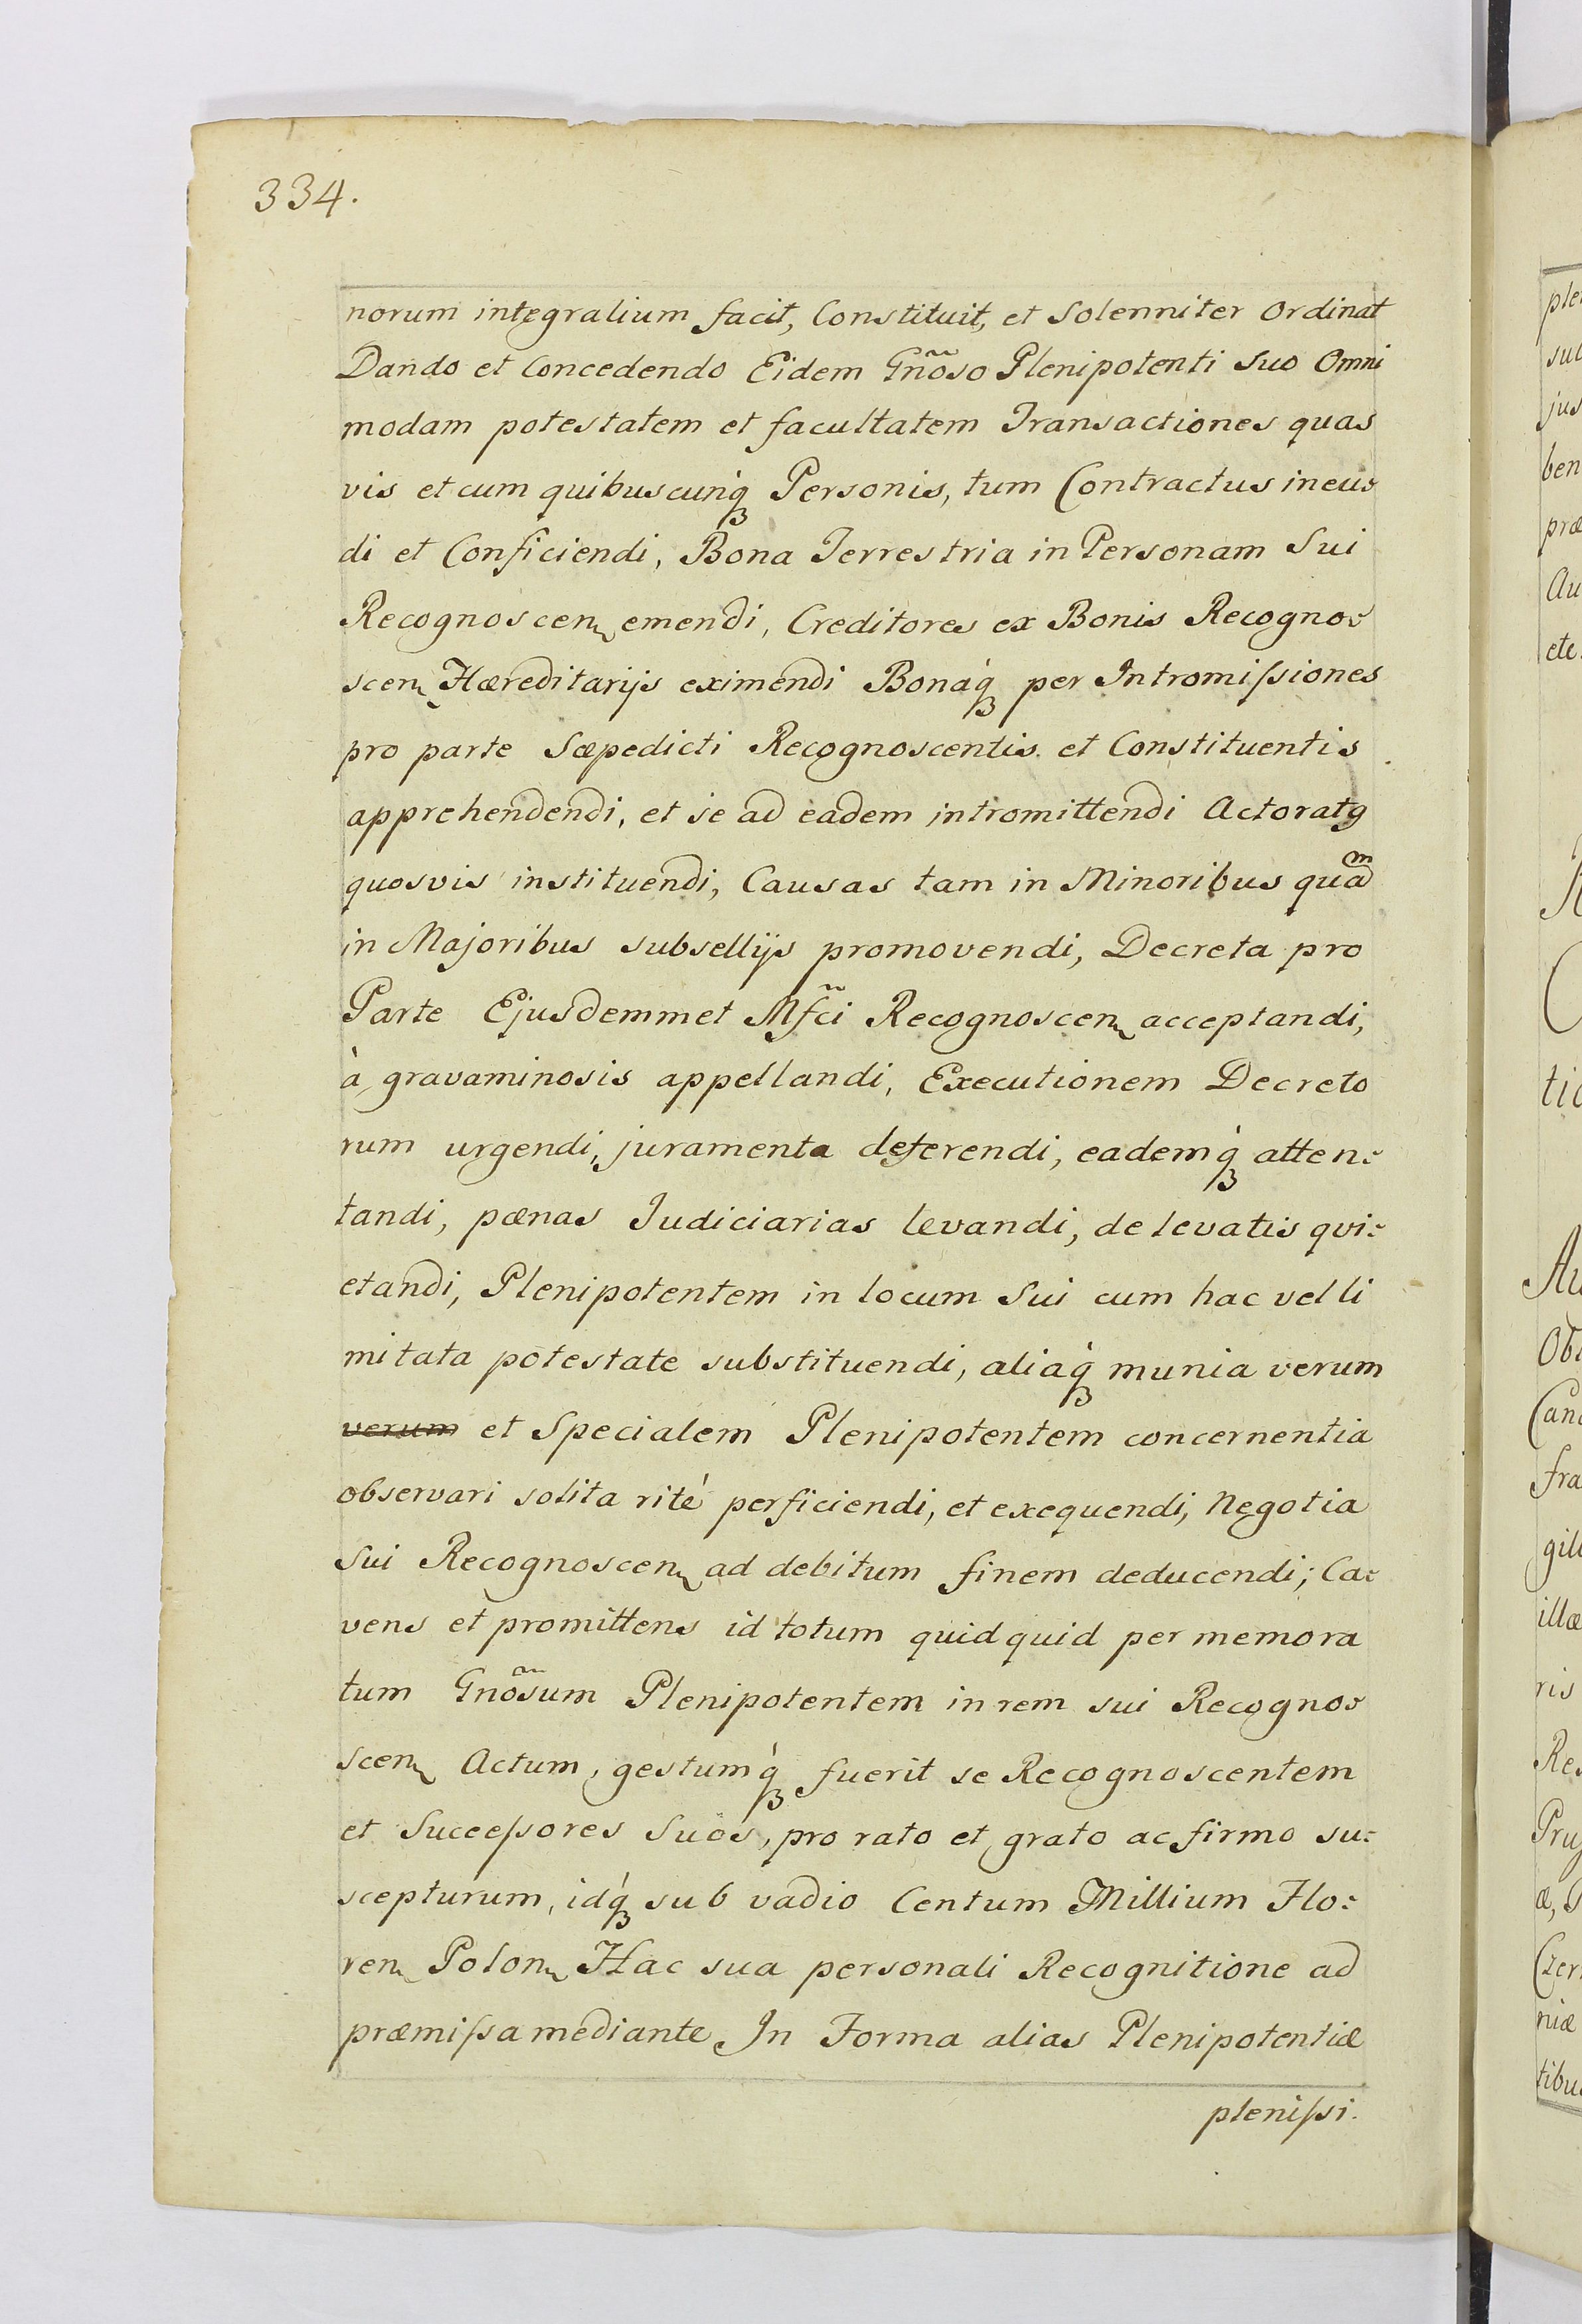 334.
norum integralium facit, Constituit, et Solenniter Ordinat
Dando et Concedendo Eidem Gnõso Plenipotenti Suo Omni
modam potestatem et facultatem Transactiones quas
vis et cum quibuscunq́ꝫ Personis, tum Contractus ineun
di et Conficiendi, Bona Terrestria in Personam Sui
Recognoscen emendi, Creditores ex Bonis Recogno:
scen Hæreditarijs eximendi Bonaq́ꝫ per Intromiſsiones
pro parte Sæpedicti Recognoscentis et Constituentis
apprehendendi, et se ad eadem intromittendi Actoratꝯ
quosvis instituendi, Causas tam in Minoribus quam
in Majoribus subsellijs promovendi, Decreta pro
Parte Ejusdemmet Mfc̃i Recognoscen acceptandi,
à gravaminosis appellandi, Executionem Decreto
rum urgendi, juramenta deferendi, eademq́ꝫ atten:
tandi, pænas Judiciarias levandi, de levatis qvi:
etandi, Plenipotentem in locum Sui cum hac vel li
mitata potestate substituendi, aliaq́ꝫ munia verum
verum et Specialem Plenipotentem concernentia
observari solita rité perficiendi, et exequendi, Negotia
Sui Recognoscen ad debitum finem deducendi; Ca:
vens et promittens id totum quidquid per memora
tum Gnõsum Plenipotentem in rem sui Recogno:
scen Actum, gestumq́ꝫ fuerit se Recognoscentem
et Succeſsores Suos, pro rato et grato ac firmo su:
scepturum, idq́ꝫ sub vadio Centum Millium Flo:
ren Polon Hac sua personali Recognitione ad
præmiſsa mediante In Forma alias Plenipotentiæ
pleniſsi.